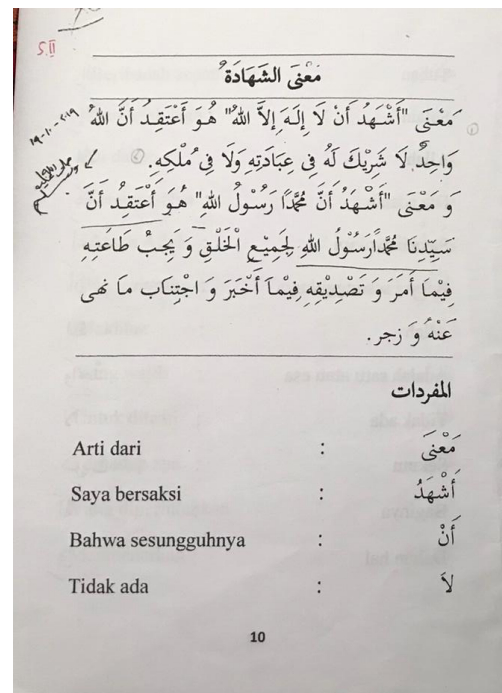 5 II
مَعْنَى الشَّهَادَةُ
مَعْنَى "أَشْهَدُ أَنْ لَا إِلَهَ إِلاَّ اللهُ" هُوَ أَعْتَقِدُ أَنَّ اللهُ
وَاحِدٌ لَا شَرِيْكَ لَهُ فِى عِبَادَتِهِ وَلَا فِى مُلْكِهِ.
وَ مَعْنَى "أَشْهَدُ أَنَّ مُحَمَّدًا رَسُولُ اللهِ" هُوَ أَعْتَقِدُ أَنَّ
سَيِّدِنَا مُحَمَّدًا رَسُوْلُ اللهِ لِجَمِيْعِ الْخَلْقِ وَ يَجِبُ طَاعَتِهِ
فِيْمَا أَمَرَ وَ تَصْدِيْقِهِ فِيْمَا أَخْبَرَ وَ اجْتِنَابِ مَا نَهَى
عَنْهُ وَ زجر.
المفردات
Arti dari : مَعْنَى
Saya bersaksi : أَشْهَدُ
Bahwa sesungguhnya : أَنْ
Tidak ada : لاَ
10